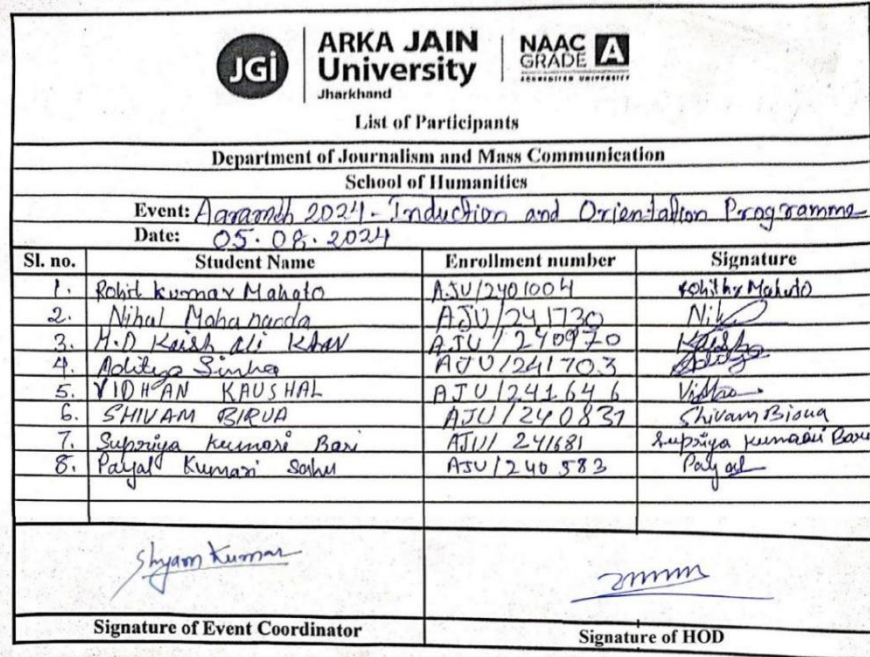 JGi
ARKA JAIN
University
Jharkhand
NAAC
GRADE A
ACCREDITED UNIVERSITY
List of Participants
Department of Journalism and Mass Communication
School of Humanities
Event: Aarambh 2024 - Induction and Orientation Programme
Date: 05.08.2024
Sl. no. Student Name Enrollment number Signature
1. Rohit Kumar Mahato AJU/2401004 Mahato
2. Nihal Mohananda AJU/241730
3. M.D Kaish Ali KHAN AJU/240970 Kaish
4. Aditya Sinha AJU/241703 Aditya
5. VIDHAN KAUSHAL AJU/241646
6. SHIVAM BIRUA AJU/240831 Shivam Birua
7. Supriya Kumari Bari AJU/241681 Supriya Kumari Bari
8. Payal Kumari Sahu AJU/240583 Payal
Shyam Kumar
Signature of Event Coordinator Signature of HOD